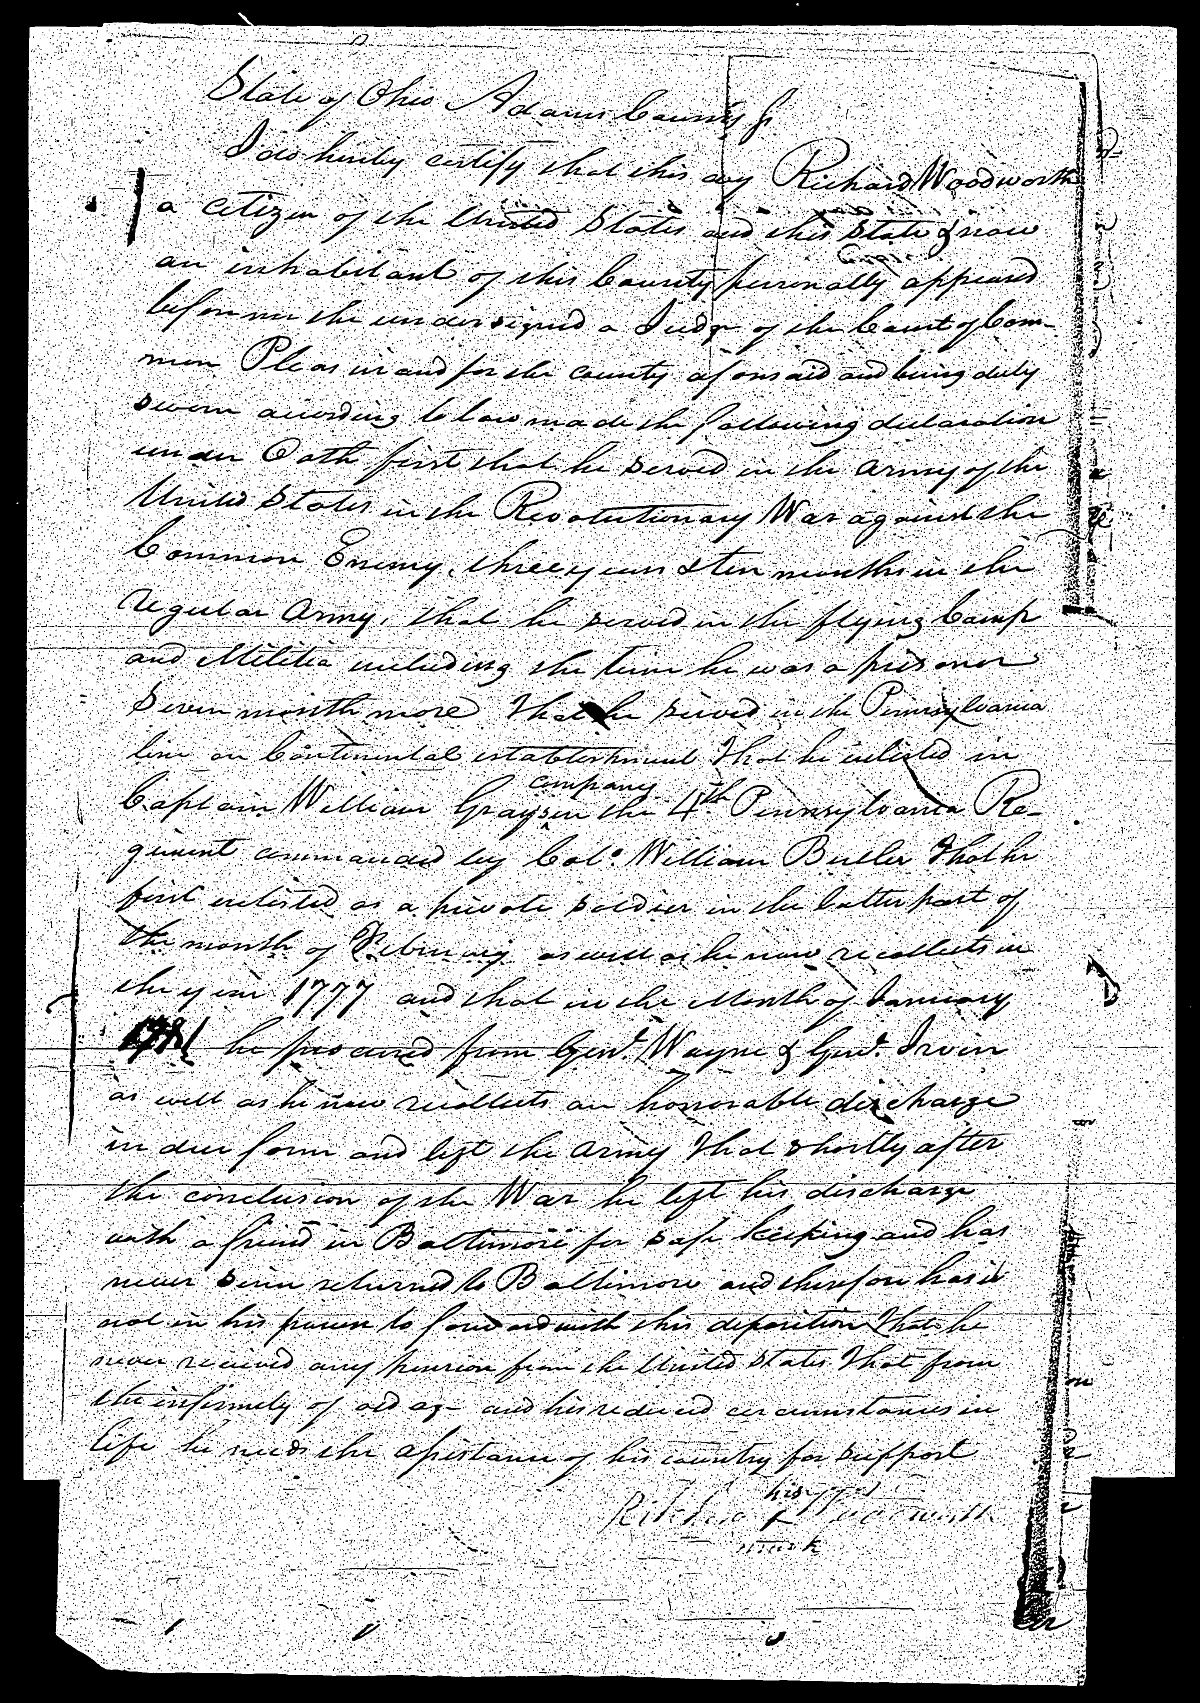 State of Ohio Adams County Ss
I do hereby certify that this day Richard Woodworth
a citizen of the United States and this State & now
an inhabitant of this County personally appeared
before me the undersigned a Judge of the Court of Com-
mon Pleas in and for the county aforesaid and being duly
sworn according to law made the following declaration
under Oath first that he served in the army of the
United States in the Revolutionary War against the
Common Enemy, three years & ten months in the
regular army, that he served in the flying Camp
and Militia including the time he was a prisoner
Seven month more That he served in the Pennsylvania
line on Continental establishment That he enlisted in
company
Captain William Grays in the 4th Pennsylvania Re-
giment commanded by Colo. William Butler That he
first enlisted as a private soldier in the latter part of
the month of February as well as he now recollects in
the year 1777 and that in the Month of January
1781 he procured from Genl. Wayne & Genl. Irvin
as well as he now recollects an honorable discharge
in due form and left the army That shortly after
the conclusion of the War he left his discharge
with a friend in Baltimore for safe keeping and has
never since returned to Baltimore and therefore has it
not in his power to forward with this deposition That he
never received any pension from the United States That from
the infirmity of old age and his reduced circumstances in
life he needs the assistance of his country for support
his
Richard x Woodworth
mark